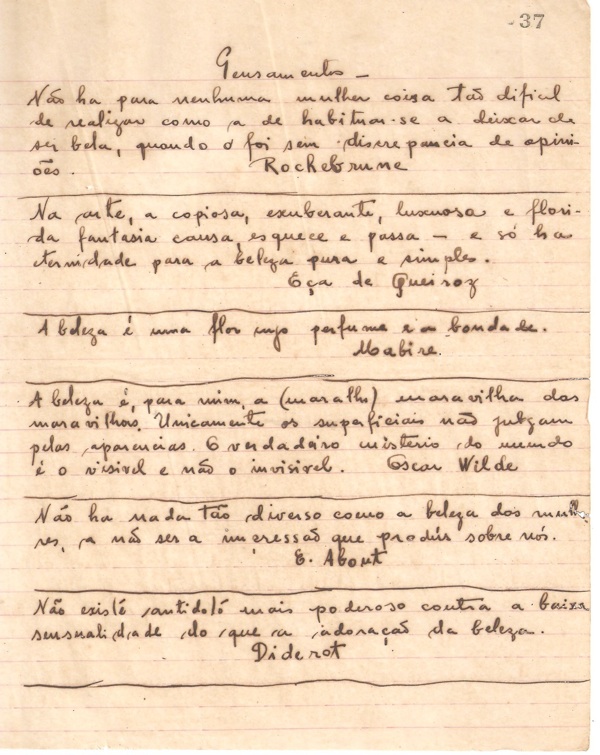 37
Pensamentos —
Não ha para nenhuma mulher coisa tão dificil
de realizar como a de habituar-se a deixar de
ser bela, quando o foi sem discrepancia de opini-
ões. Rochebrune
Na arte, a copiosa, exuberante, luxuosa e flori-
da fantasia causa, esquece e passa — e só ha
eternidade para a beleza pura e simples.
Eça de Queiroz
A beleza é uma flor cujo perfume e a bondade.
Mabire.
A beleza é, para mim, a (maralh) maravilha das
maravilhas. Unicamente os superficiais não julgam
pelas aparencias. O verdadário misterio do mundo
é o visivel e não o invisivel. Oscar Wilde
Não ha nada tão diverso como a beleza das mulh
res, a não ser a impressão que produs sobre nós.
E. About
Não existe antidoto mais poderoso contra a baixa
sensualidade do que a adoração da beleza.
Diderot